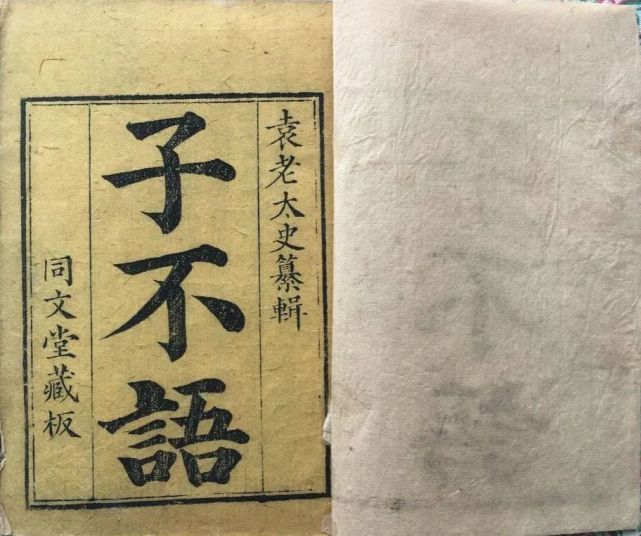 袁老太史纂輯
子不語
同文堂藏板